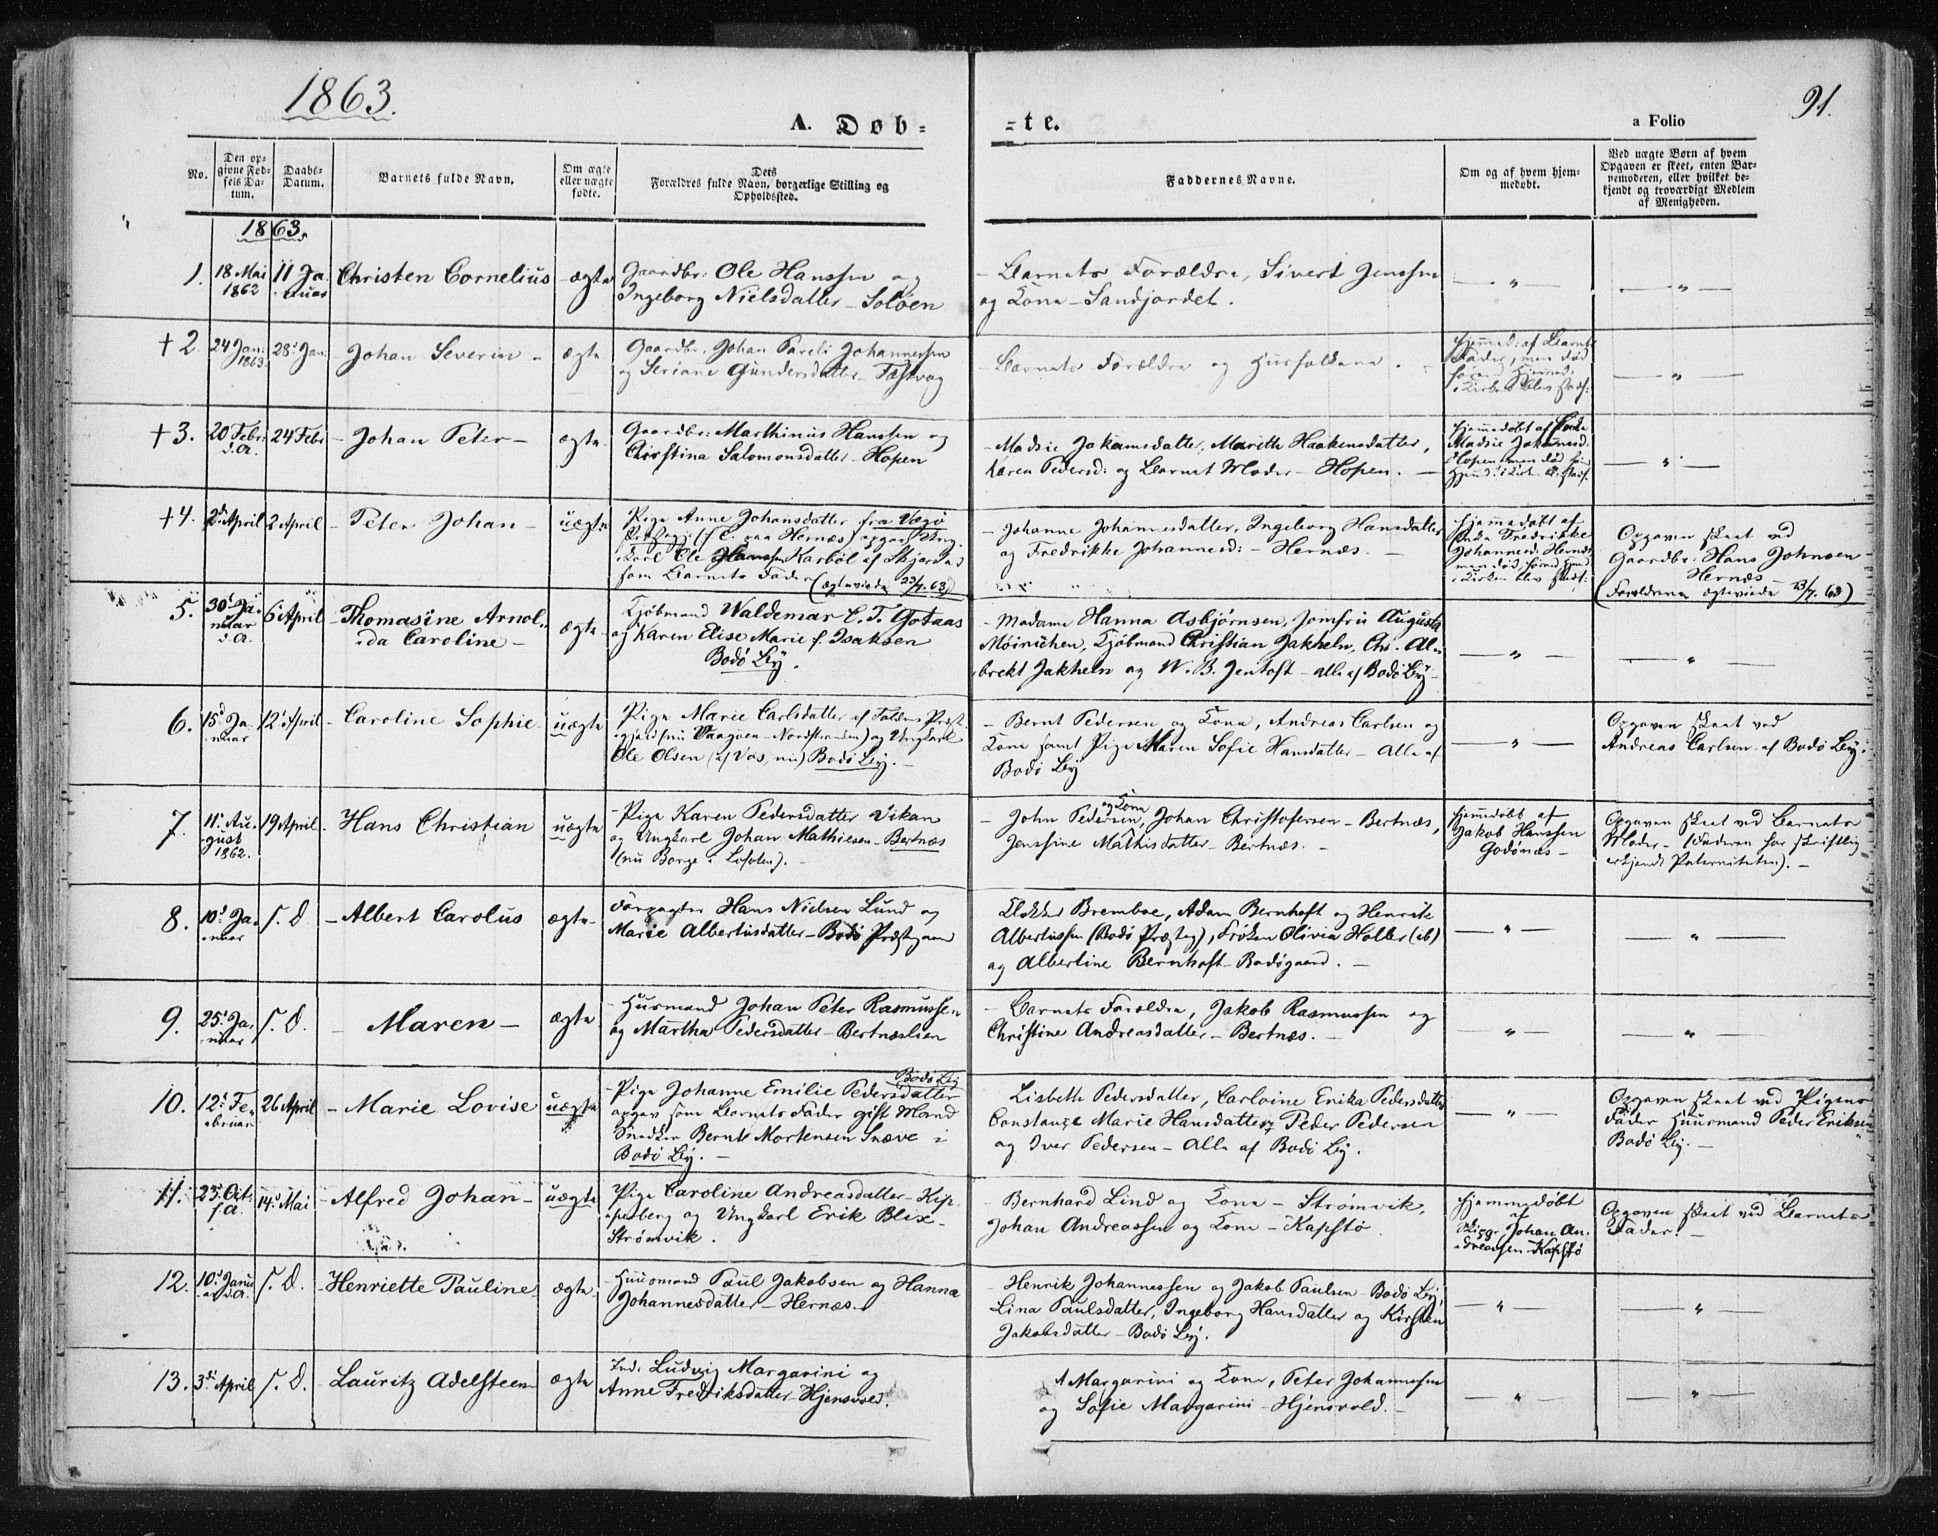 1863.
91.
A. Døb-
-te.
a Folio
No.
Den op-
givne Fød-
sels Da-
tum.
Daabs-
Datum.
Barnets fulde Navn.
Om ægte
eller uægte
fødte.
Dets
Forældres fulde Navn, borgerlige Stilling og
Opholdssted.
Faddernes Navne.
Om og af hvem hjem-
medøbt.
Ved uægte Børn af hvem
Opgaven er skeet, enten Bar-
nemoderen, eller hvilket be-
kjendt og troværdigt Medlem
af Menigheden.
1863.
1.
18 Mai
1862
11 Ja-
nuar
Christen Cornelius
ægte
Gaardbr: Ole Hanssen og
Ingeborg Nielsdatter - Soløen
- Barnets Forældre, Sivert Jenssen
og Kone - Sandjordet.
— " —
— " —
+ 2.
24 Jan:
1863.
28 Jan.
- Johan Severin -
ægte
Gaardbr. Johan Pareli Johannessen
og Seriane Gundersdatter - Fæstvog
- Barnets Forældre og Huusfolkene.
Hjemmed: af Barnets
Fader, men død
— " —
+ 3.
20 Febr:
d. A.
24 Febr
- Johan Peter -
ægte
Gaardbr: Marthinus Hanssen og
Christina Salomonsdatter - Hopen
- Madsie Jakamsdatter, Marith Haakensdatter,
Karen Pedersd: og Barnets Moder - Hopen. -
Hjemmedøbt af Enke
Madsie Jakamsd:
Hopen, men død før
— " —
+ 4.
2d April
2 April
- Peter Johan -
uægte
Pige Anne Johansdatter fra Vegø
Ole Hanssen Karbøl af Skjerstad
som Barnets Fader (ægteviede 23/7. 63)
- Johanne Johannesdatter, Ingeborg Hansdatter
og Fredrikke Johannesd: - Hernæs. -
Hjemmedøbt af
Enke Fredrikke
Johannesd: Hernæs
Opgaven skeet ved
Gaardbr: Hans Johnsen
Hernæs
(Forældrene ægteviede 23/7. 63)
5.
30d Ja-
nuar
d. A.
6 April
- Thomasine Arnol-
da Caroline -
ægte
Kjøbmand Waldemar C. T. Gotaas
og Karen Elise Marie f. Isaksen
Bodø By.
- Madame Hanna Asbjørnsen, Jomfru Augusta
Moinichen, Kjøbmand Christian Jakheln, Chr. Al-
brekt Jakheln og W. B. Jentoft - alle af Bodø By -
— " —
— " —
6.
15d Ja-
nuar
12' April
- Caroline Sophie -
uægte
Pige Marie Carlsdatter af Foldens Præst-
gjeld (nu Vaagnen - Nordstranden) og Ungkarl
Ole Olsen (af Vos, nu) Bodø By. -
- Bernt Pedersen og Kone, Andreas Carlsen og
Kone samt Pige Maren Sofie Hansdatter - Alle af
Bodø By
— " —
Opgaven skeet ved
Andreas Carlsen af Bodø By.
7.
11' Au-
gust
1862.
19 April
- Hans Christian
uægte
- Pige Karen Pedersdatter Vikan
og Ungkarl Johan Mathiesen - Bertnæs
(nu Borge i Lofoten). -
- John Pedersen og Kone, Johan Christofersen - Bertnæs,
Jenssine Mathisdatter - Bertnæs. -
Hjemmedøbt af
Jakob Hanssen
Godønæs -
Opgaven skeet ved Barnets
Moder - (Faderen har skriftlig
erkjendt Paterniteten). -
8.
10d Ja-
nuar
S. D.
- Albert Carolus
ægte
Forpagter Hans Nielsen Lund og
Marie Albertusdatter - Bodø Præstegaard
Klokker Bremboe, Adam Bernhoft og Henrik
Albertussen (Bodø Præsteg), Frøken Olivia Holler (ib)
og Albertine Bernhoft - Bodøgaard. -
— " —
— " —
9.
25d Ja-
nuar
S. D.
- Maren -
ægte
- Huusmand Johan Peter Rasmussen
og Martha Pedersdatter - Bertnæslien
- Barnets Forældre, Jakob Rasmussen og
Christine Andreasdatter - Bertnæs. -
" —
"
10.
12d Fe-
bruar
26 April
- Marie Lovise
uægte
Bodø By
- Pige Johanne Emilie Pedersdatter
opgav som Barnets Fader gift Mand
Snedker Bernt Mortensen Snæve i
Bodø By. -
Lisbeth Pedersdatter, Carloine Erika Pedersdatter
Constance Marie Hansdatter, Peder Pedersen
og Iver Pedersen - Alle af Bodø By.
— " —
Opgaven skeet ved Pigens
Fader Huusmand Peder Eriksen
Bodø By. -
11.
23d Oct.
f. A.
14d Mai
- Alfred Johan -
uægte
Pige Caroline Andreasdatter - Kop-
perberg og Ungkarl Erik Blix -
Strømvik.
- Bernhard Lind og Kone - Strømvik,
Johan Andreassen og Kone - Kapstø
Hjemmedøbt
af
Johan An-
dreassen - Kapstø
Opgaven skeet ved Barnets
Fader. -
12.
10d Janu-
ar d. A.
S. D.
- Henriette Pauline
ægte
- Huusmand Paul Jakobsen og Hanna
Johannesdatter - Hernæs.
- Henrik Johannessen og Jakob Paulsen - Bodø By,
Lina Paulsdatter, Ingeborg Hansdatter og Kirsten
Jakobsdatter - Bodø By.
— " —
— " —
13.
3d April
S. D.
- Lauritz Adelsteen
ægte
Ind. Ludvig Margarini og
Anne Fredriksdatter - Hjensvold.
A Margarini og Kone, Peter Johannessen
og Sofie Margarini - Hjensvold. -
— " —
— " —